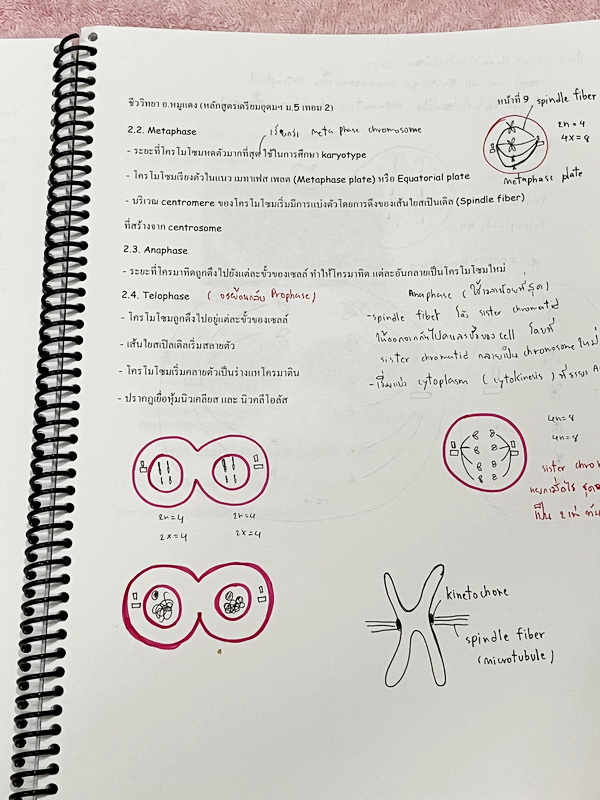 ชีววิทยา อ.หมูแดง (หลักสูตรเตรียมอุดมฯ ม.5 เทอม 2)
หน้าที่ 9
spindle fiber
2.2. Metaphase
เรียกว่า metaphase chromosome
2n = 4
4x = 8
- ระยะที่โครโมโซมหดตัวมากที่สุด ใช้ในการศึกษา karyotype
- โครโมโซมเรียงตัวในแนว เมทาเฟส เพลต (Metaphase plate) หรือ Equatorial plate
metaphase plate
- บริเวณ centromere ของโครโมโซมเริ่มมีการแบ่งตัวโดยการดึงของเส้นใยสปินเดิล (Spindle fiber)
ที่สร้างจาก centrosome
2.3. Anaphase
- ระยะที่โครมาทิดถูกดึงไปยังแต่ละขั้วของเซลล์ ทำให้โครมาทิด แต่ละอันกลายเป็นโครโมโซมใหม่
2.4. Telophase ( Prophase)
Anaphase (ใช้เวลาน้อยที่สุด)
- โครโมโซมถูกดึงไปอยู่แต่ละขั้วของเซลล์
- เส้นใยสปินเดิลเริ่มสลายตัว
- โครโมโซมเริ่มคลายตัวเป็นร่างแหโครมาติน
- ปรากฏเยื่อหุ้มนิวเคลียส และ นิวคลีโอลัส
- spindle fiber ดึง sister chromatid
ให้ออกจากกันไปคนละขั้วของ cell โดยที่
sister chromatid กลายเป็น chromosome ใหม่
- เริ่มแบ่ง cytoplasm (cytokinesis) ที่ระยะ
4n = 8
4n = 8
sister
เป็น 2 แท่ง
2n = 4 2n = 4
2x = 4 2x = 4
kinetochore
spindle fiber
(microtubule)